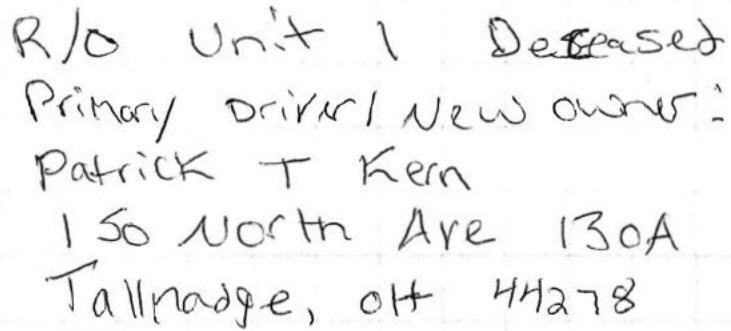 R/O Unit 1 Deceased
Primary Driver/ New owner:
Patrick T Kern
150 North Ave 130A
Tallmadge, OH 44278